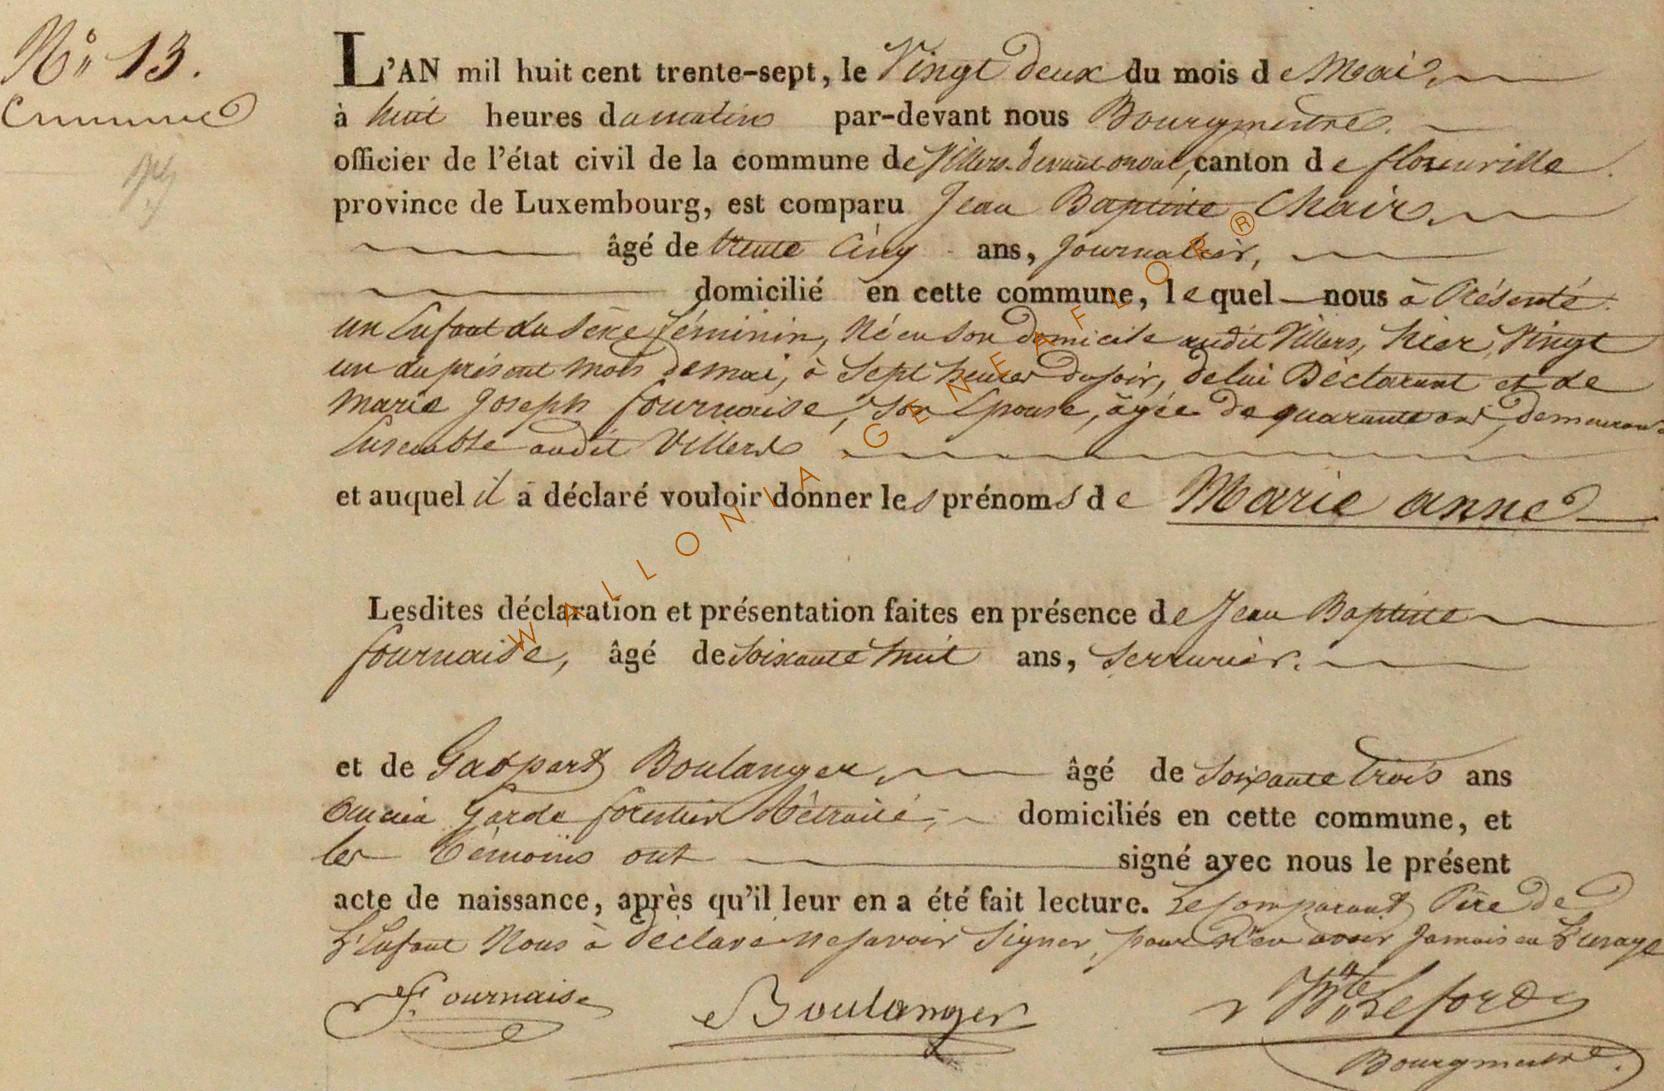 N° 13.
L'AN mil huit cent trente-sept, le Vingt deux du mois de Mai,
à huit heures du matin par-devant nous Bourgmestre.
officier de l'état civil de la commune de Villers-devant-orval, canton de florenville
province de Luxembourg, est comparu Jean Baptiste Chair,
âgé de trente Cinq ans, Journalier,
domicilié en cette commune, lequel nous à Présenté
un Enfant du Sexe féminin, Né en son domicile audit Villers, hier, Vingt
un du présent mois de mai, à Sept heures du soir, de lui Déclarant et de
Marie Joseph fournaise, Son Epouse, âgée de quarante ans, demeurant
Ensemble audit Villers
et auquel il a déclaré vouloir donner les prénoms de Marie anne
Lesdites déclaration et présentation faites en présence de Jean Baptiste
fournaise, âgé de Soixante huit ans, Serrurier.
et de Gaspard Boulanger, âgé de Soixante Trois ans
Ancien Garde forestier Rétraité, domiciliés en cette commune, et
les Témoins ont signé avec nous le présent
acte de naissance, après qu'il leur en a été fait lecture. Le Comparant Père de
L'Enfant Nous à Déclaré ne savoir Signer, pour n'en avoir Jamais eu L'usage
Fournaise Boulanger
Bourgmestre.
WALLONIA-GENEAFLOR®